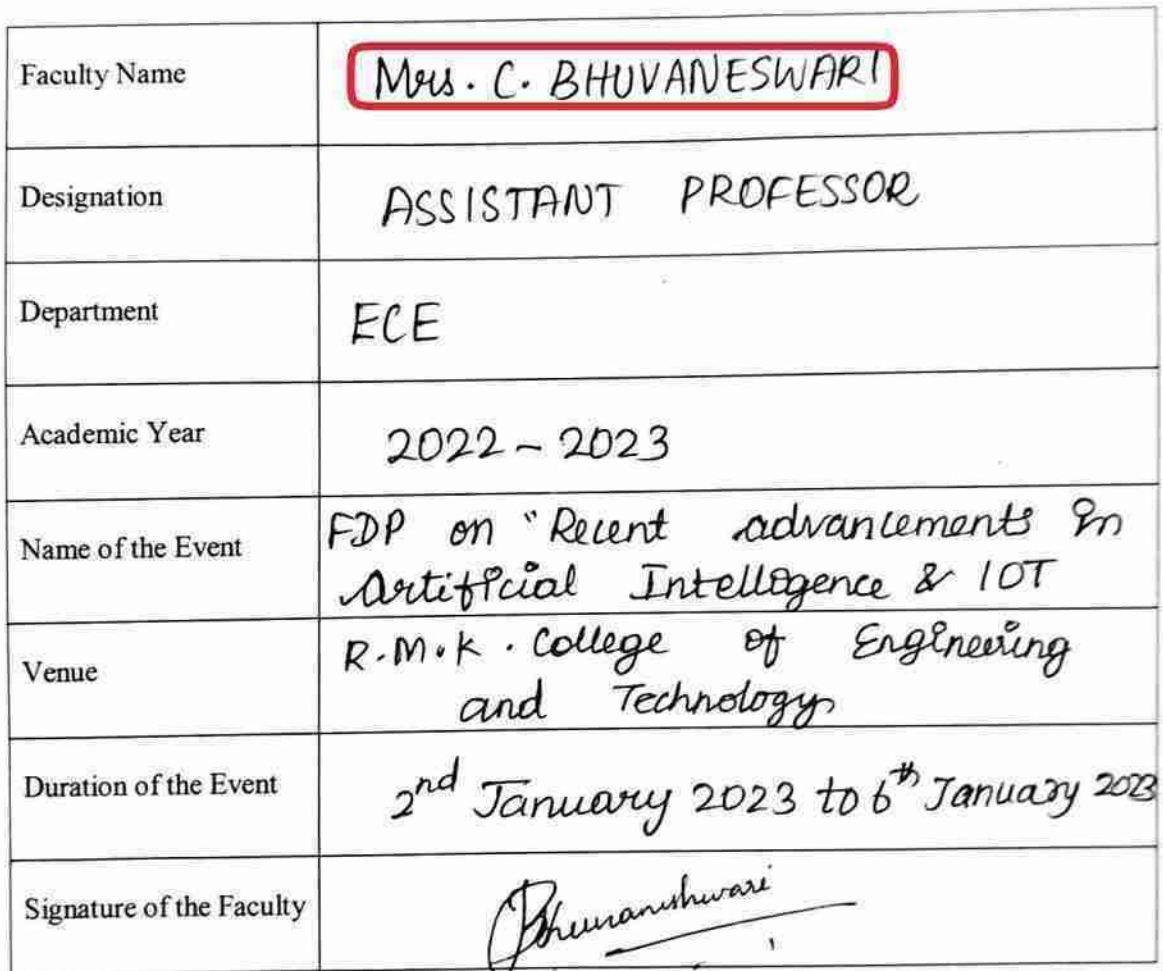 Faculty Name Mrs. C. BHUVANESWARI
Designation ASSISTANT PROFESSOR
Department ECE
Academic Year 2022 - 2023
Name of the Event FDP on "Recent advancements in
Artificial Intelligence & IOT
Venue R.M.K. College of Engineering
and Technology
Duration of the Event 2nd January 2023 to 6th January 2023
Signature of the Faculty Bhuvaneshwari